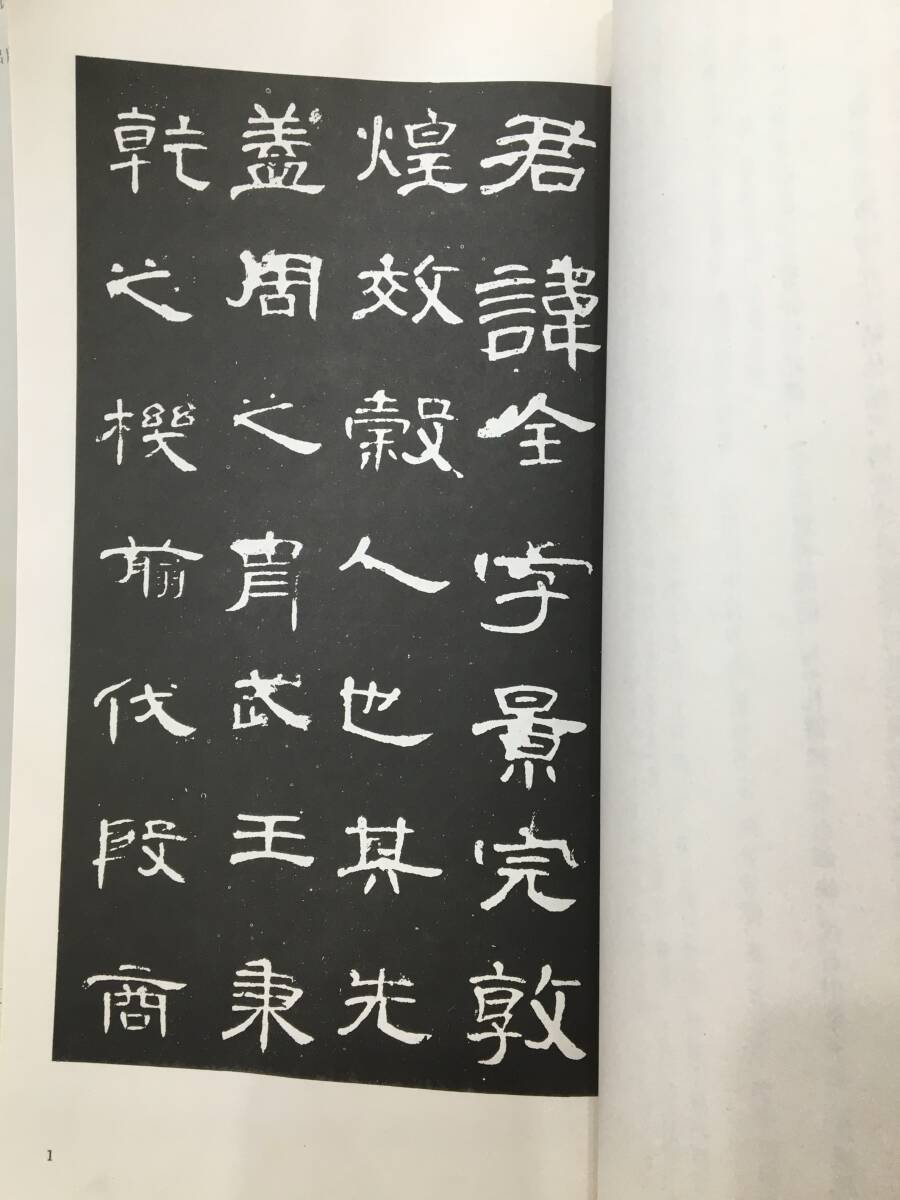 君諱全字景完敦
煌效糓人也其先
蓋周之胄武王秉
乾之機翦伐殷商
1